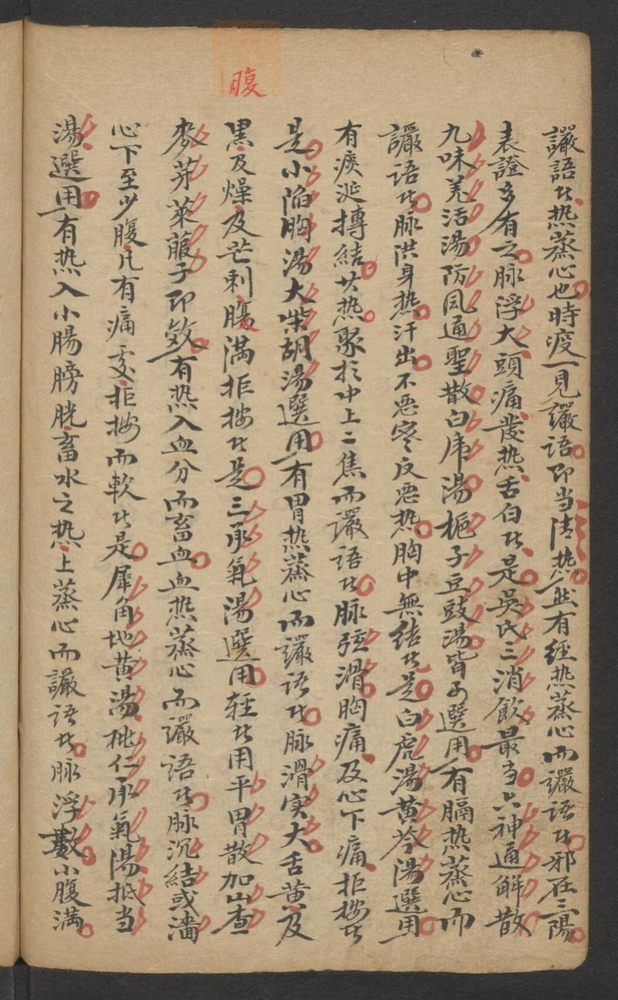 腹
讝語者热蒸心也時疫一見讝語即当清热然有经热蒸心而讝语者邪在三陽
表證多有之脉浮大頭痛發热舌白者是吳氏三消飲最当六神通解散
九味羌活湯防風通聖散白虎湯梔子豆豉湯皆可選用有膈热蒸心而
讝语者脉洪身热汗出不恶寒反恶热胸中無结者是白虎湯黄芩湯選用
有痰涎摶結其热聚於中上二焦而讝语者脉弦滑胸痛及心下痛拒按者
是小陷胸湯大柴胡湯選用有胃热蒸心而讝语者脉滑实大舌黄及
黑及燥及芒刺腸满拒按者是三承氣湯選用轻者用平胃散加山查
麥芽萊菔子即效有热入血分而畜血血热蒸心而讝语者脉沉結或濇
心下至少腹凡有痛處拒按而軟者是犀角地黄湯桃仁承氣湯抵当
湯選用有热入小腸膀胱畜水之热上蒸心而讝语者脉浮數小腹满